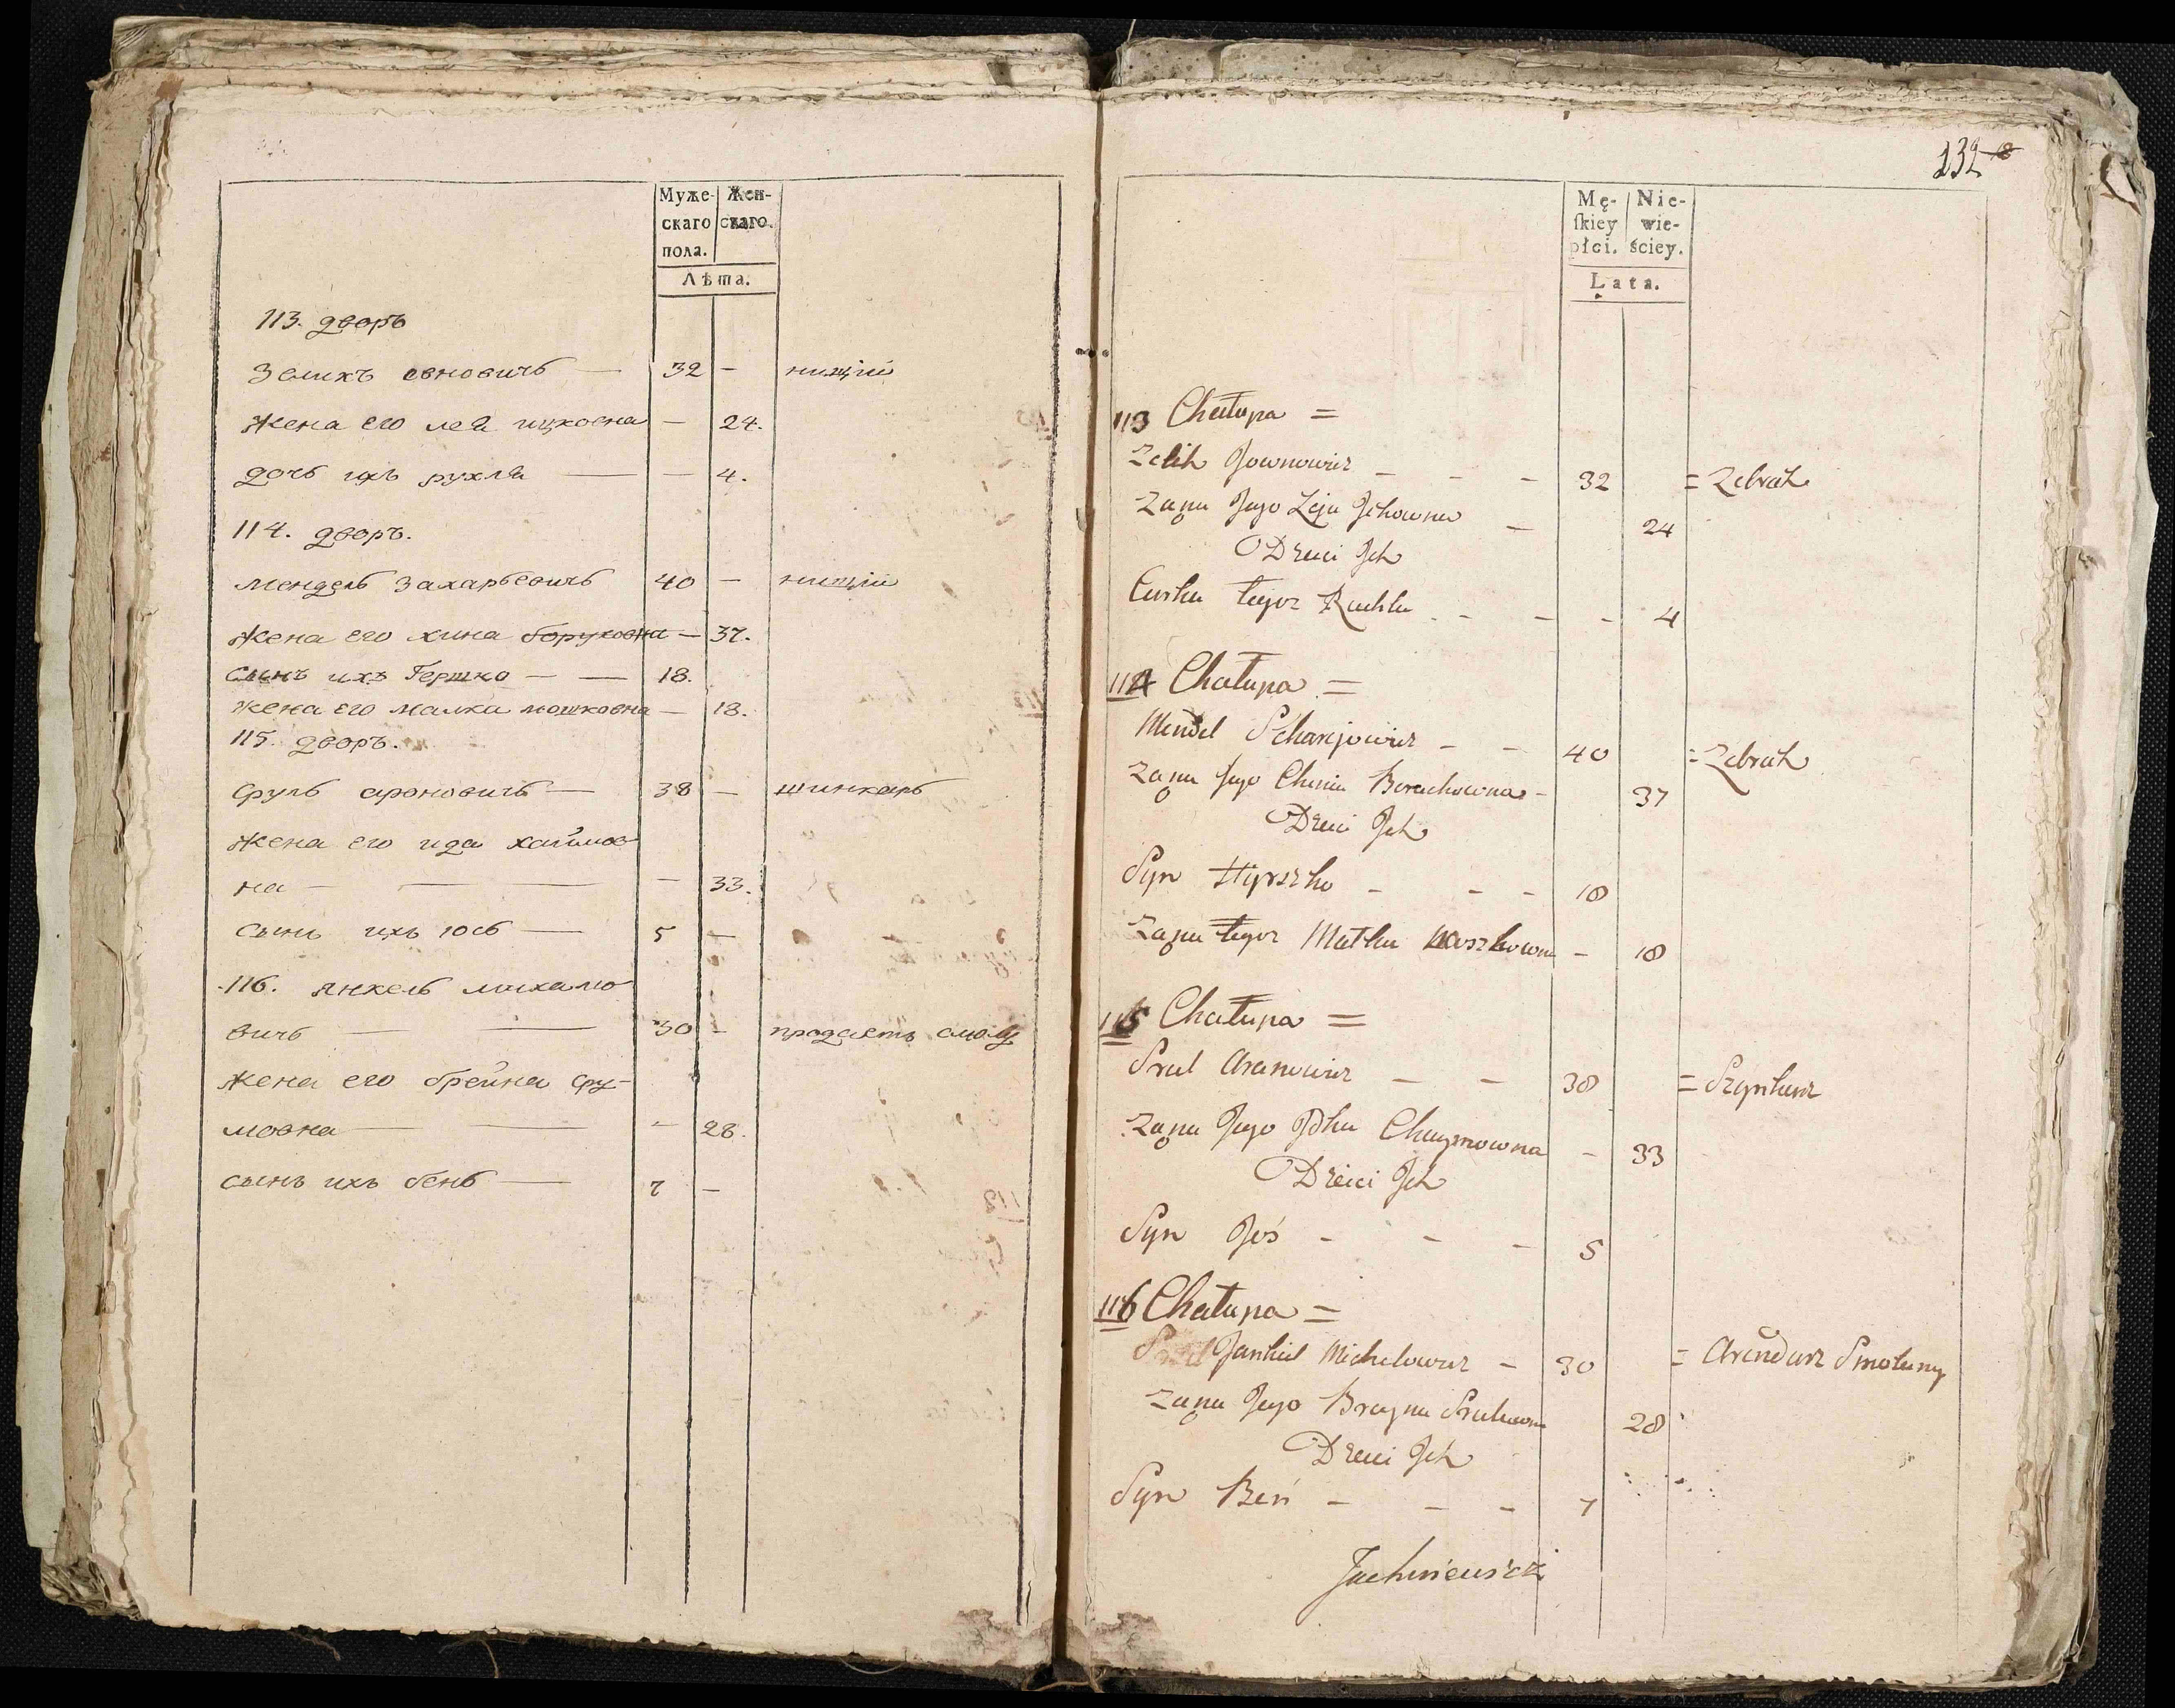 Муже-
скаго
пола.
Жен-
скаго.
Лѣта.
113. дворъ
Зелихъ евновичъ — 32 — нищіи
жена его лея ицковна — 24.
дочь ихъ рухля — — 4.
114. дворъ.
мендель захарьевичъ 40 — нищіи
жена его хина боруховна — 37.
сынъ ихъ Гершко — — 18.
жена его малка мошковна — 18.
115. дворъ.
сруль ароновичъ — 38 — шинкарь
жена его ида хаимов
на — — — — 33.
сынъ ихъ іось — 5 —
116. янкель михалю
вичъ — — 30 — продаетъ смолу
жена его брейна сру-
мовна — — — 28.
сынъ ихъ бень — 7 —
132
Mę-
ſkiey
płci.
Nie-
wie-
ściey.
Lata.
113 Chałupa =
Zelik Jownowicz - - - 32 = Zebrak
Zona Jego Leja Jckowna - 24
Dzieci Jch
Curka tegoz Ruchla - - - 4
114 Chałupa =
Mendel Scharjowicz - - 40 = Zebrak
Zona Jego Chinia Boruchowna - 37
Dzieci Jch
Syn Hyrszko - - - 18
Zona tegoz Małka Moszkowna - 18
115 Chałupa =
Srul Aranowicz - - 38 = Szynkarz
Zona Jego Jdka Chaymowna - 33
Dzieci Jch
Syn Joś - - - 5
116 Chałupa =
Jankiel Michelowicz - 30 = Arendarz Smolany
Zona Jego Brayna Srulowna 28
Dzieci Jch
Syn Beń - - - 7